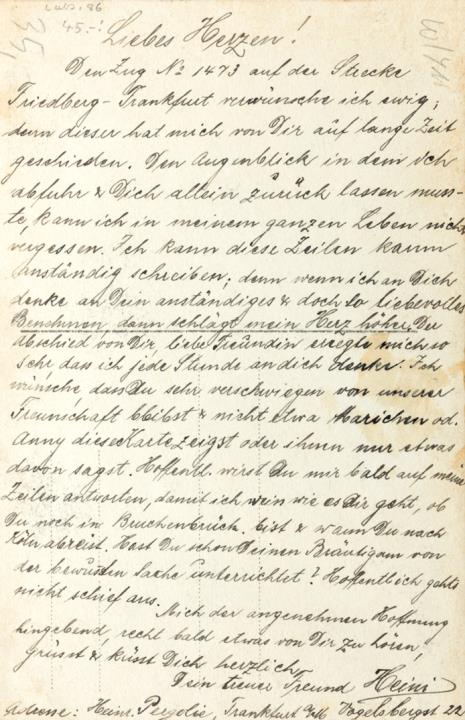 45.-
Liebes Herzen!
Den Zug No 1473 auf der Strecke
Friedberg-Frankfurt verwünsche ich ewig;
denn dieser hat mich von Dir auf lange Zeit
geschieden. Den Augenblick in dem ich
abfuhr & Dich allein zurück lassen muss-
te, kann ich in meinem ganzen Leben nicht
vergessen. Ich kann diese Zeilen kaum
anständig schreiben; denn wenn ich an Dich
denke an Dein anständiges & doch so liebevolles
Benehmen, dann schlägt mein Herz höher. Der
Abschied von Dir, liebe Freundin erregte mich so
sehr, dass ich jede Stunde an dich denke. Ich
wünsche, dass Du sehr verschwiegen von unserer
Freunschaft bleibst & nicht etwa Marichen od.
Anny diese Karte zeigst oder ihnen nur etwas
davon sagst. Hoffentl. wirst Du mir bald auf meine
Zeilen antworten, damit ich weis wie es dir geht, ob
Du noch in Bruchenbrück. bist & wann Du nach
Köln abreist. Hast Du schon Deinen Bräutigam von
der bewußten Sache unterrichtet? Hoffentlich gehts
nicht schief aus.
Mich der angenehmen Hoffnung
hingebend, recht bald etwas von Dir zu hören,
grüsst & küsst Dich herzlich
Dein treuer Freund Heini
Adresse: Heinr. Frankfurt a/M Vogelsbergst 22